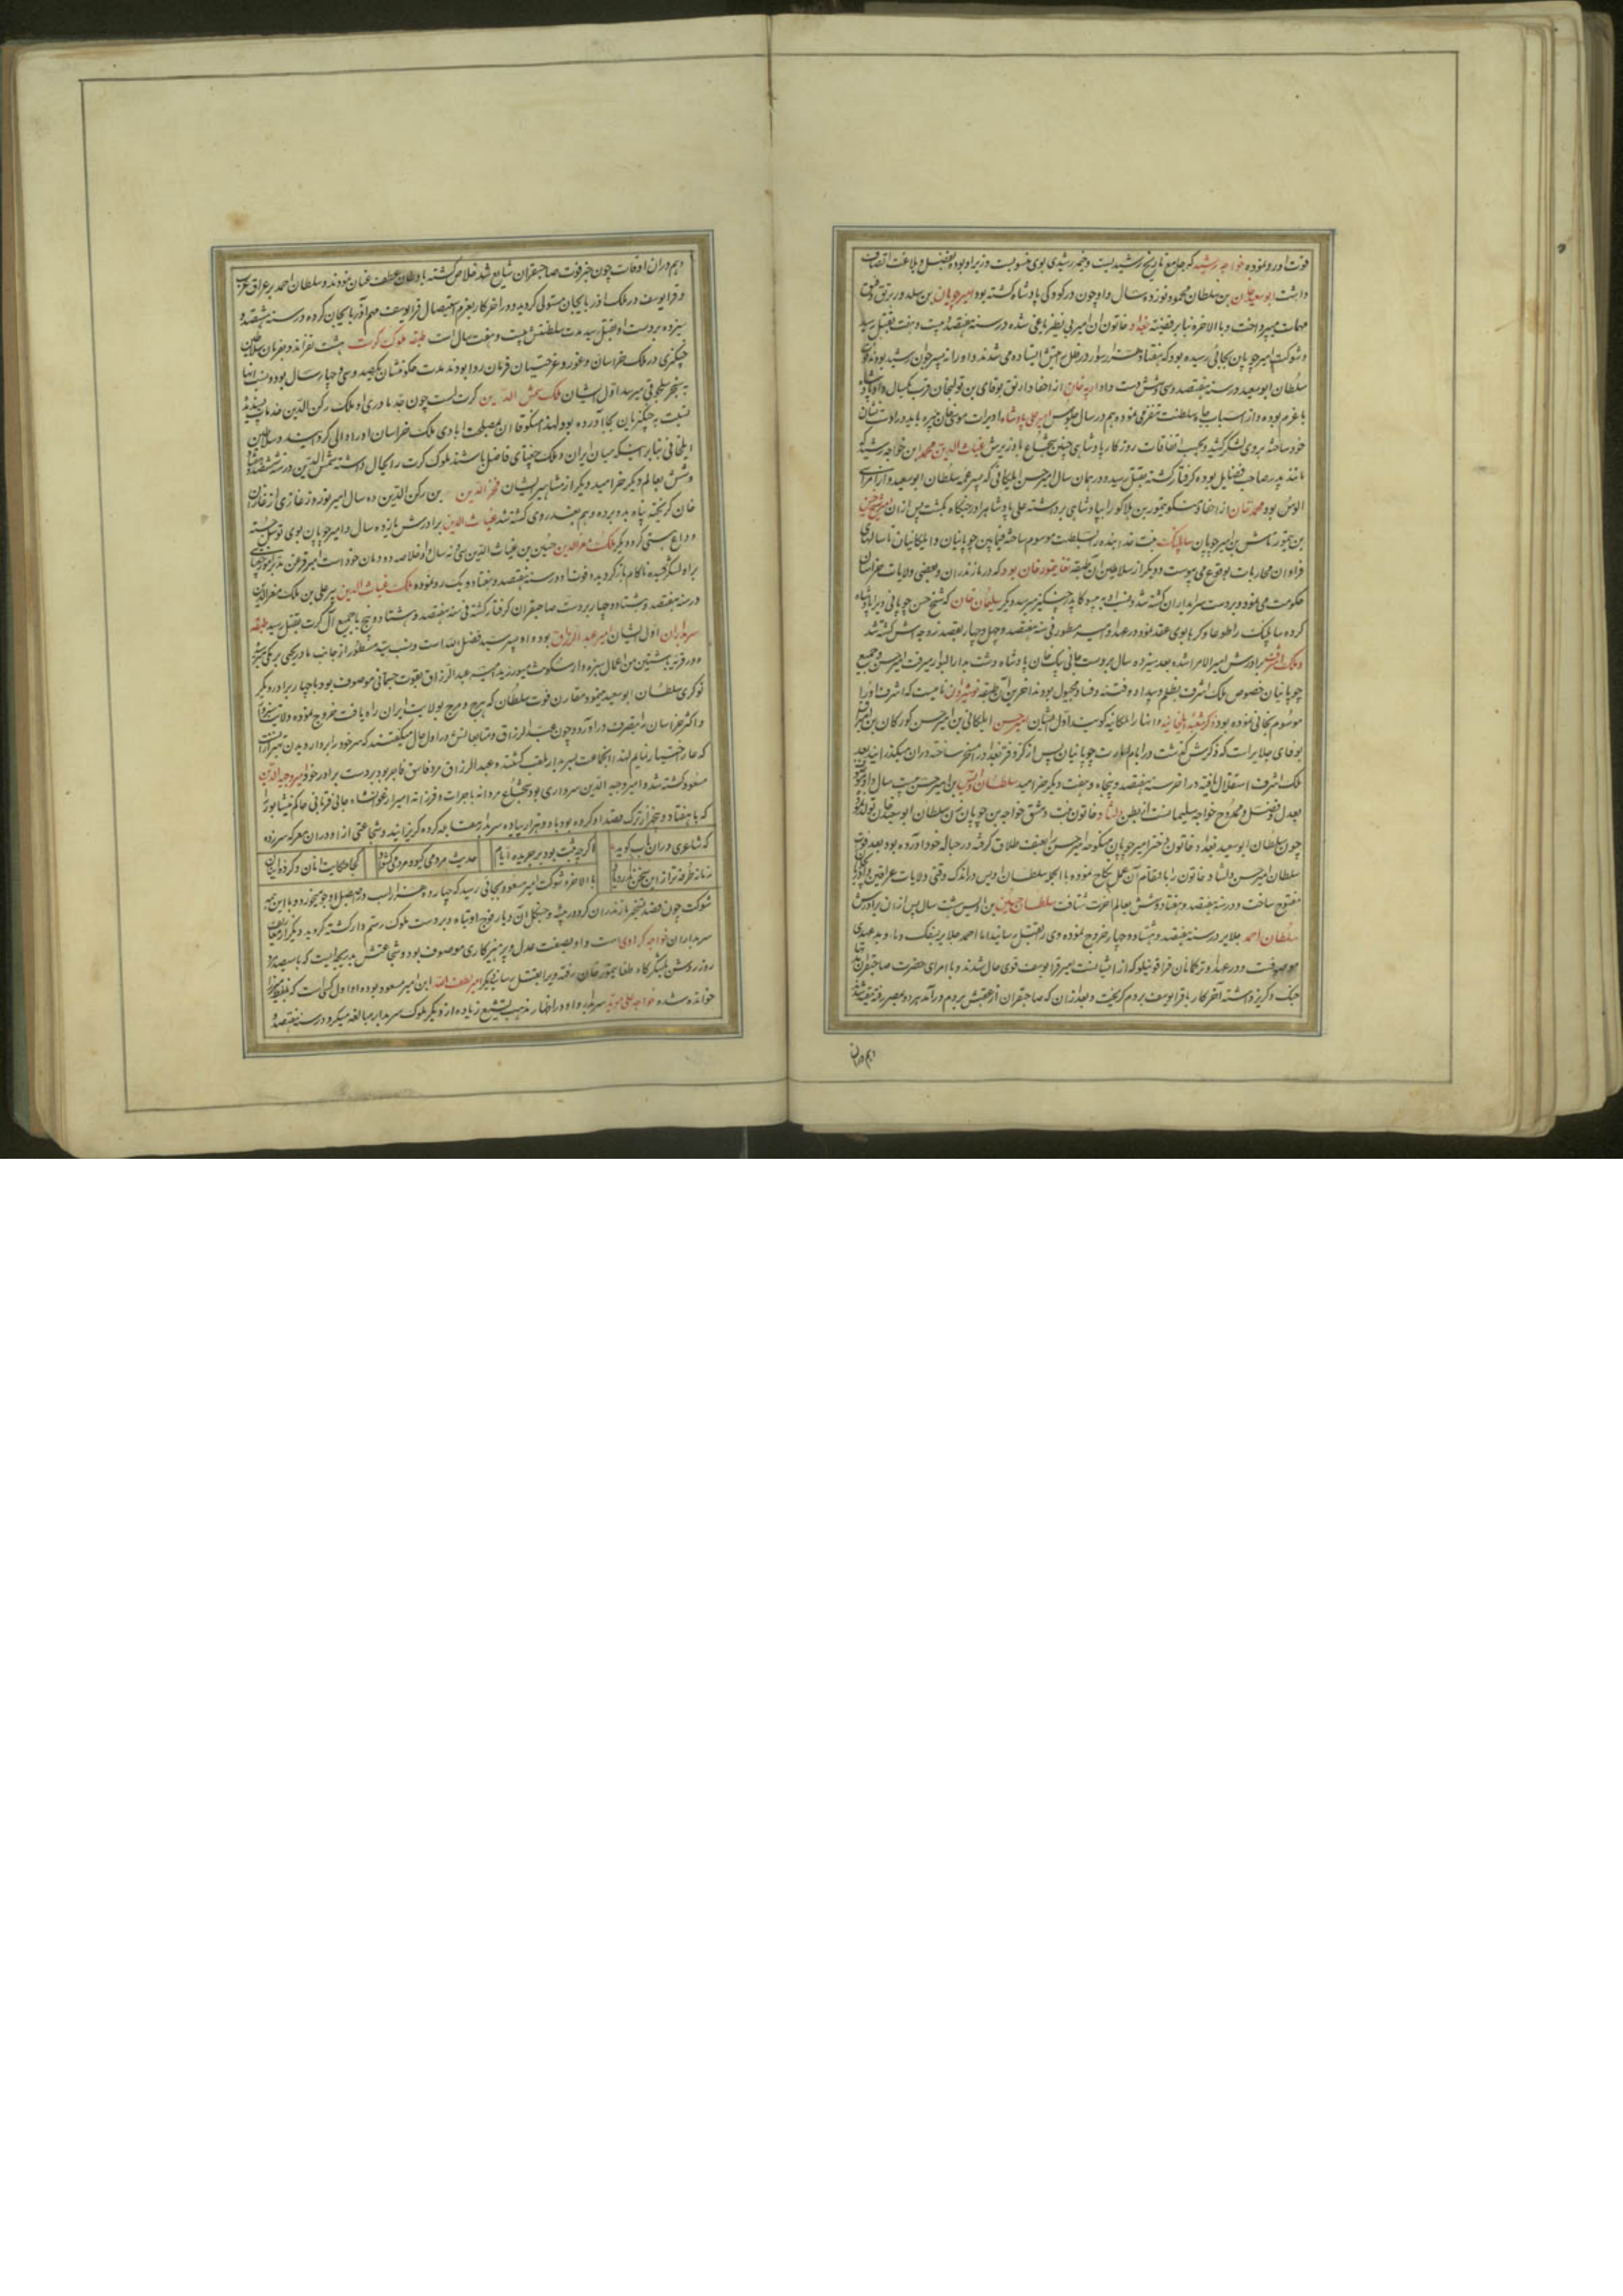 فوت اورو نموده خواجه رشید که جامع تاریخ رشیدیست و خمه رشیدی بوی منسوبست وزیر او بوده بفضل و بلاغت اتصاف
داشت ابوسعید خان بن سلطان محمد و نوزده سال و او چون در کودکی پادشاه کشته بود امیر چوپان بن
مهمات میپرداخت و بالاخره بنابر قضیه بغداد خاتون ان امیر بی نظیر یاغی شده در سنه هفتصد و بیست و هفت بقتل رسید
و شوکت امیر چوپان بجائی رسیده بود که هفتاد هزار سوار در ظل رایتش ایستاده می شدند و او را نه پسر جوان رشید بودند
سلطان ابوسعید در سنه هفتصد و سی و شش دست داد ارپه خان از احفاد ارتق بوقای بن تولیخان قرب یکسال
با عزم بوده و از اسباب جاه و سلطنت تنفر می نموده هم در سال جلوس امیر علی پادشاه اویرات موسی خان
خود ساخته بروی لشکر کشید و بحسب اتفاقات روزکار پادشاهی چنین شجاع با وزیرش غیاث الدین محمد ابن خواجه رشید که
مانند پدر صاحب فضایل بوده کرفتار کشته بقتل رسید و در همان سال امیر حسن ایلکانی که پسر عمه سلطان ابوسعید و از امرای
الوس بود محمد خان از احفاد منکو تیمور بن هلاکو را بپادشاهی برداشته علی پادشاه را در جنکاه بکشت پس از ان شیخ حسن
بن تیمورتاش بن امیر چوپان ساتی بیک بنت خدابنده را بسلطنت موسوم ساخته فیمابین چوپانیان و ایلکانیان تا سالهای
فراوان محاربات بوقوع می پیوست و دیکر از سلاطین آن طبقه طغا تیمور خان بود که در مازندران و بعضی ولایات خراسان
حکومت می نمود و بر دست سربداران کشته شد و نسب او به جوجی برادر چنکیز میرسد و دیکر سلیمان خان که شیخ حسن چوپانی ویرا پادشاه
کرده ساتی بیک را طوعا و کرها بوی عقد نمود و در عهد او امیر مسطور فی سنه هفتصد و چهل و چهار بقصد زوجه اش کشته شد
و ملک اشرف برادرش امیر الامرا شده بعد سیزده سال بر دست جانی بیک خان پادشاه دشت بدار البوار میرفت امیر حسن و جمیع
چوپانیان خصوص ملک اشرف بظلم و بیداد و فتنه و فساد مجبول بودند اخرین آن طبقه نوشیروان نامیست که اشرف او را
موسوم بخانی نموده بود ذکر شعبه ایلکانیه و انها را ایلکانیه کویند اول ایشان امیر حسن ایلکانی بن امیر حسین کورکان بن
بوقای جلایر است که ذکرش کذشت در ایام امارت چوپانیان پس از کر و فر بغداد را مسخر ساخته در ان میکذرانید بعد
ملک اشرف استقلال یافته در اخر سنه هفتصد و پنجاه و هفت دیکر خرامید سلطان اویس بن امیر حسن بیست سال
بعدل و فضل و ممدوح خواجه سلیمانست از بطن دلشاد خاتون بنت دمشق خواجه بن چوپان زن سلطان ابوسعید خان تولد نموده
چون سلطان ابوسعید بغداد خاتون دختر امیر چوپان منکوحه امیر حسن را بعنف طلاق کرفته در حباله خود اورده بود بعد فوت
سلطان امیر حسن دلشاد خاتون را بانتقام آن عمل نکاح نموده بالجمله سلطان اویس در اندک وقتی ولایات عراقین
مفتوح ساخت و در سنه هفتصد و هفتاد و شش بعالم اخرت شتافت سلطان حسین بن اویس هشت سال پس از ان برادرش
سلطان احمد جلایر در سنه هفتصد و هشتاد و چهار خروج نموده وی را بقتل رسانید اما احمد جلایر بسفک دما و بدعهدی
موصوفست و در عهد او ترکمانان قراقوینلو که از انشیانست بمیر قرا یوسف قوی حال شدند و با امرای حضرت صاحبقران
جنک و کریز داشته آخر کار با قرا یوسف بروم کریخت و بعد از ان که صاحبقران از عقبش بروم درآمد هر دو بمصر رفته مقید شدند
و هم در ان
و هم در ان اوقات چون خبر فوت صاحبقران شایع شد خلاص کشته باوطان عطف عنان نمودند و سلطان احمد بر عراق عرب
و قرا یوسف در ملک اذربایجان مستولی کردید و در اخر کار بعزم استیصال قرا یوسف مهم آذربایجان کرده در سنه هشتصد و
سیزده بر دست او بقتل رسید مدت سلطنتش بیست و هفت سال است طبقه ملوک کرت هشت نفر اند و بفرمان سلاطین
چنکیزی در ملک خراسان و غور و غرجستان فرمان روا بودند مدت حکومتشان یکصد و سی و چهار سال بوده و نسب انها
به سنجر سلجوقی میرسد اول ایشان ملک شمس الدین کرت است چون جد مادری او ملک رکن الدین خدمات پسندیده
نسبت به چنکیزیان بجا آورده بود لهذا منکوقاان بمصلحت ابادی ملک خراسان او را والی کردانید و سلاطین
ایلخانی بنابر اینکه میان ایران و ملک چغتای فاصل باشند ملوک کرت را بحال داشته شمس الدین در سنه ششصد و هفتاد
و شش بعالم دیکر خرامید و دیکر از مشاهیر ایشان فخر الدین بن رکن الدین ده سال امیر نوروز غازی از غازان
خان کریخته پناه بدو برده و هم بغدر وی کشته شد غیاث الدین برادرش یازده سال و امیر چوپان بوی توسل جسته
وداع هستی کرد و دیکر ملک معز الدین حسین بن غیاث الدین سی و نه سال او خلاصه دودمان خود است امیر قزغن
براو لشکر کشیده ناکام بازکردیده فوت او در سنه هفتصد و هفتاد و یک رو نموده ملک غیاث الدین پیر علی بن ملک معز الدین
در سنه هفتصد و هشتاد و چهار بر دست صاحبقران کرفتار کشته فی سنه هفتصد و هشتاد و پنج با جمیع آل کرت بقتل رسید طبقه
سربداران اول ایشان میر عبد الرزاق بود و او پسر سید فضل الله است و نسب سید مسطور از جانب مادر به یحیی برمکی
و در قریه باشتین من اعمال سبزوار سکونت میورزید امیر عبد الرزاق بقوت جسمانی موصوف بود با چهار برادر دیکر
نوکری سلطان ابوسعید مینمود مقارن فوت سلطان که هرج و مرج بولایت ایران راه یافت خروج نموده ولایت سبزوار
و اکثر خراسان را بتصرف دراورد و چون عبد الرزاق و متابعانش در اول حال میکفتند که سر خود را بر دار دیدن بهتر ازانست
که عار اختیار نمایم لهذا انجماعت بسربدار ملقب کشتند و عبد الرزاق مرد فاسق فاجر بود بر دست برادر خود امیر وجیه الدین
مسعود کشته شد و امیر وجیه الدین سرداری بود شجاع مردانه با جرات و فرزانه امیر ارغونشاه جانی قربانی حاکم نیشابور را
که با هفتاد و پنجهزار ترک قصد او کرده بود با دو هزار پیاده سربدار مقابله کرده کریزانید و شجاعتی از او در ان معرکه سر زده
که شاعری در ان باب کوید اکرچه ثبت بود بر جریده ایام حدیث مردمی کیو و مردمی کشواد کجا حکایت انان و کرده ایشان
زمانه طرفه تر از این سخن ندارد یاد بالاخره شوکت امیر مسعود بجائی رسید که چهارده هزار اسب در اصطبل او جو میخورد و با این همه
شوکت چون قصد تسخیر مازندران کرد در بیشه و جنکل آن دیار فوج او تباه و بر دست ملوک رستمدار کشته کردید و دیکر از معارف
سربداران خواجه کراوی است و او بصفت عدل و پرهیزکاری موصوف بود و شجاعتش بدرجه ایست که با سیصد مرد
روز روشن بلشکرکاه طغا تیمور خان رفته ویرا بقتل رسانید دیکر امیر لطف الله ابن امیر مسعود بوده او اول کسی است که بلفظ میرزا
خوانده شده خواجه علی موید سربدار او در اظهار مذهب تشیع زیاده از دیکر ملوک سربدار مبالغه میکرد در سنه هفتصد و